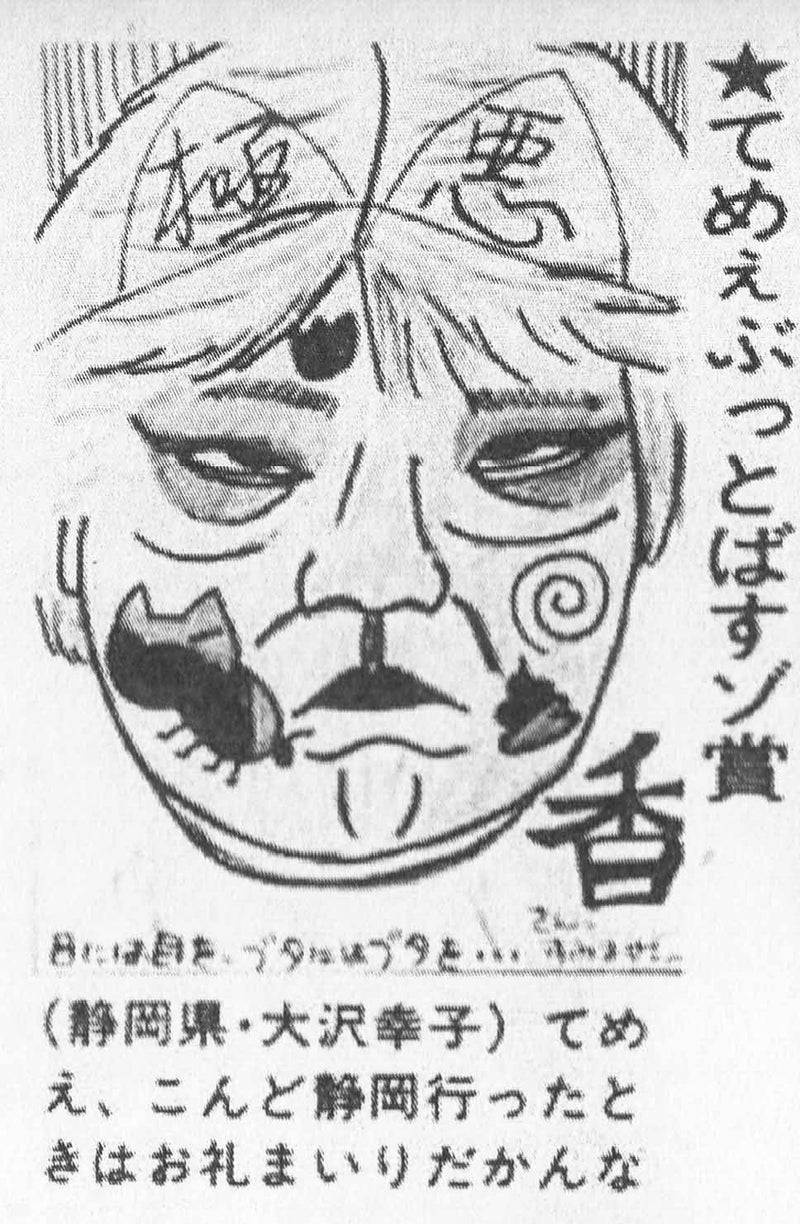 ★てめぇぶっとばすゾ賞
極悪
香
目には目を、ブタにはブタを… さん、すみません。
(静岡県・大沢幸子) てめ
え、こんど静岡行ったと
きはお礼まいりだかんな